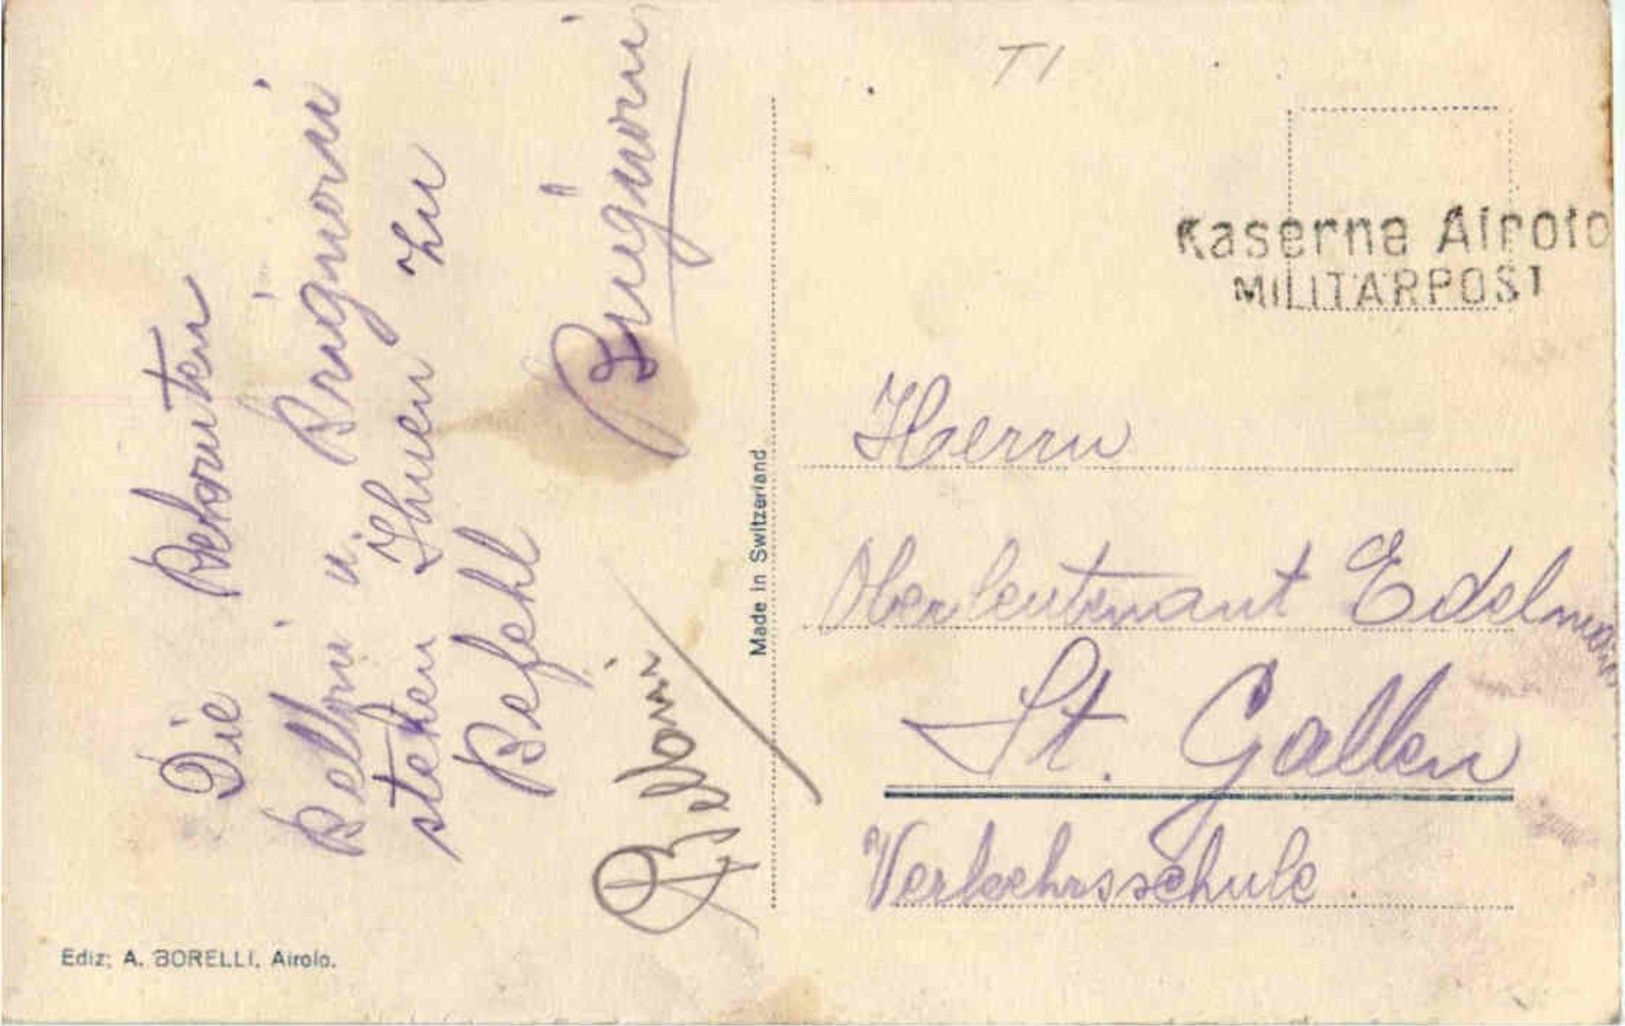 Die Rekruten
Belloni u. Brugnoni
stehen Ihnen zu
Befehl
Brugnoni
Belloni
Ediz: A. BORELLI, Airolo.
Made in Switzerland
TI
Kaserne Airolo
MILITÄRPOST
Herrn
Oberleutenant Edelmann
St. Gallen
Verkehrsschule